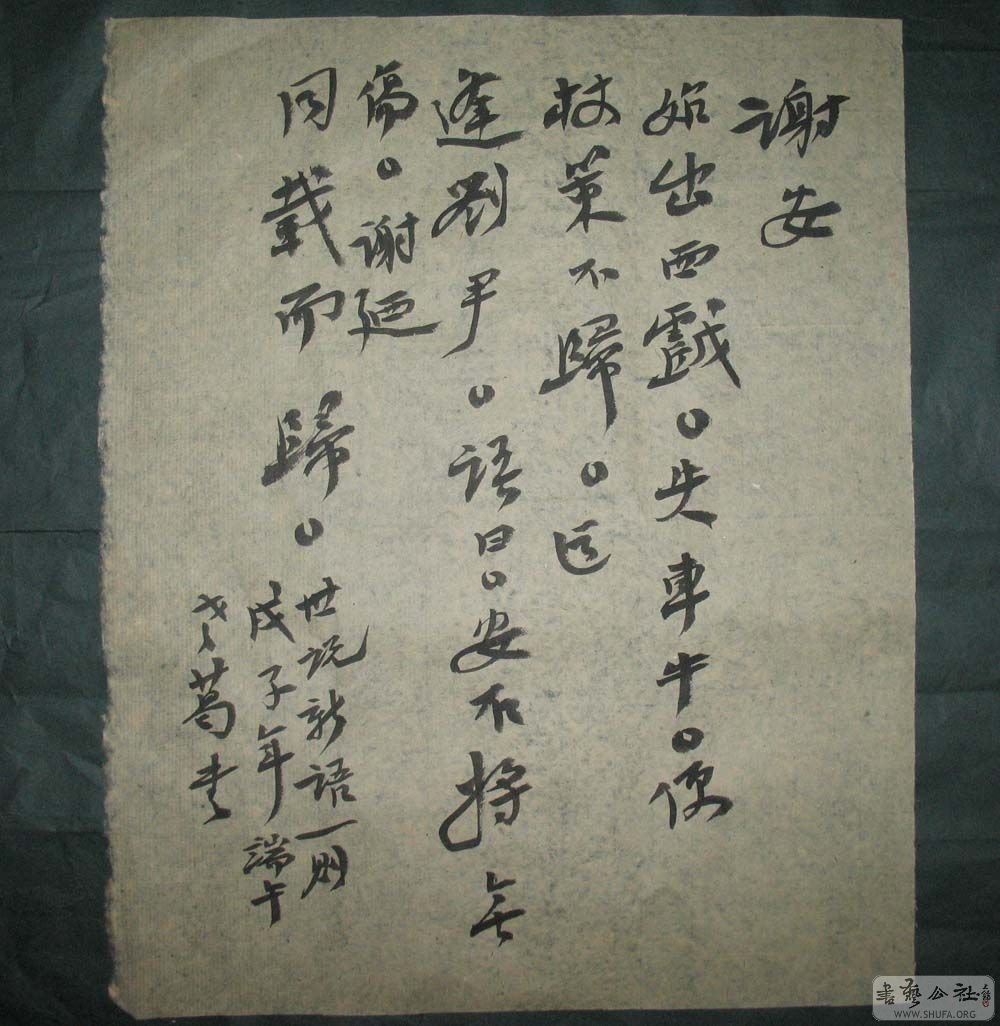 謝安
始出西戲。失車牛。便
杖策不歸。
逢劉尹。語曰。安石將無
傷。謝廼
同載而歸。
世説新語一則
戊子年端午
葛書
書藝公社
WWW.SHUFA.ORG